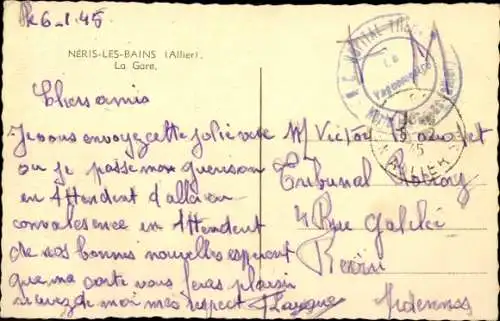 le 6-1.45
NÉRIS-LES-BAINS (Allier).
La Gare.
Chers amis
Je vous envoyez cette jolie vue
ou je passe mon guerison
en Attendent d'alla en
convalesence en Attendent
de vos bonnes nouvelles esperent
que ma carte vous feras plaisir
recevez de moi mes respect
Mr Victor
Tribunal
4 Rue Galilé
Revin
Ardennes
HOPITAL
Le
Vaguemestre
ALLIER